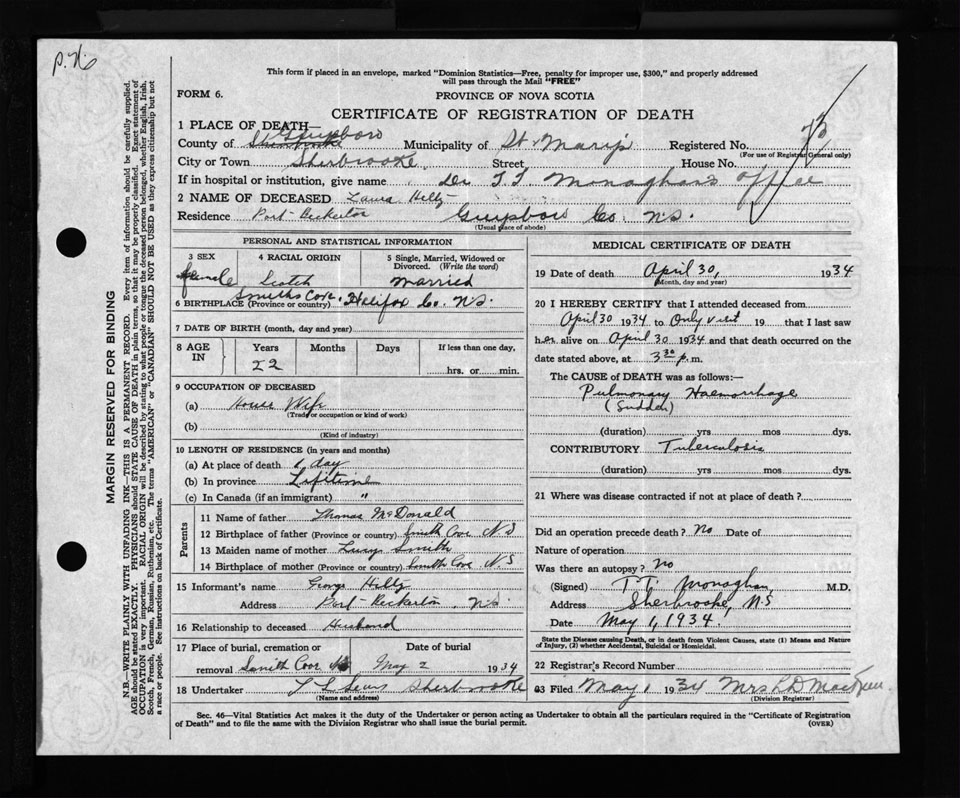 P.N.
This form if placed in an envelope, marked "Dominion Statistics—Free, penalty for improper use, $300," and properly addressed
will pass through the Mail "FREE"
FORM 6.
PROVINCE OF NOVA SCOTIA
CERTIFICATE OF REGISTRATION OF DEATH
1 PLACE OF DEATH—
County of Guysboro Municipality of St Mary's Registered No.
(For use of Registrar General only)
City or Town Sherbrooke Street, House No.
If in hospital or institution, give name Dr T T Monaghan's office
2 NAME OF DECEASED Laura Hilty
Residence Port Beckerton Guysboro Co. N.S.
(Usual place of abode)
PERSONAL AND STATISTICAL INFORMATION
3 SEX
female
4 RACIAL ORIGIN
Scotch
5 Single, Married, Widowed or
Divorced. (Write the word)
Married
6 BIRTHPLACE (Province or country) Smiths Cove, Halifax Co. N.S.
7 DATE OF BIRTH (month, day and year)
8 AGE IN
Years
22
Months
Days
If less than one day,
hrs. or min.
9 OCCUPATION OF DECEASED
(a) House Wife
(Trade or occupation or kind of work)
(b)
(Kind of industry)
10 LENGTH OF RESIDENCE (in years and months)
(a) At place of death 1 day
(b) In province Lifetime
(c) In Canada (if an immigrant) "
Parents
11 Name of father Thomas McDonald
12 Birthplace of father (Province or country) Smith Cove N S
13 Maiden name of mother Lucy Smith
14 Birthplace of mother (Province or country) Smith Cove N.S
15 Informant's name George Hilty
Address Port Beckerton, N.S.
16 Relationship to deceased Husband
17 Place of burial, cremation or Date of burial
removal Smith Cove May 2 1934
18 Undertaker Sherbrooke
(Name and address)
MEDICAL CERTIFICATE OF DEATH
19 Date of death April 30, 1934
(Month, day and year)
20 I HEREBY CERTIFY that I attended deceased from
April 30 1934 to Only visit 19 that I last saw
her alive on April 30 1934 and that death occurred on the
date stated above, at 3 30 p. m.
The CAUSE of DEATH was as follows:—
Pulmonary Haemorrhage
(Sudden)
(duration) yrs mos dys.
CONTRIBUTORY Tuberculosis
(duration) yrs mos dys.
21 Where was disease contracted if not at place of death?
Did an operation precede death? No Date of
Nature of operation
Was there an autopsy? No
(Signed) T.T. Monaghan M.D.
Address Sherbrooke, N.S
Date May 1, 1934
State the Disease causing Death, or in death from Violent Causes, state (1) Means and Nature
of Injury, (2) whether Accidental, Suicidal or Homicidal.
22 Registrar's Record Number
23 Filed May 1 1934 Mrs
(Division Registrar)
Sec. 46—Vital Statistics Act makes it the duty of the Undertaker or person acting as Undertaker to obtain all the particulars required in the "Certificate of Registration
of Death" and to file the same with the Division Registrar who shall issue the burial permit.
(OVER)
MARGIN RESERVED FOR BINDING
N.B.—WRITE PLAINLY WITH UNFADING INK—THIS IS A PERMANENT RECORD. Every item of information should be carefully supplied.
AGE should be stated EXACTLY. PHYSICIANS should STATE CAUSE OF DEATH in plain terms, so that it may be properly classified. Exact statement of
OCCUPATION is very important. RACIAL ORIGIN will be described by stating to what people or tongue the deceased person belonged, whether English, Irish,
Scotch, French, German, Russian, Ruthenian, etc. The terms "AMERICAN" or "CANADIAN" SHOULD NOT BE USED as they express citizenship but not
a race or people. See instructions on back of Certificate.